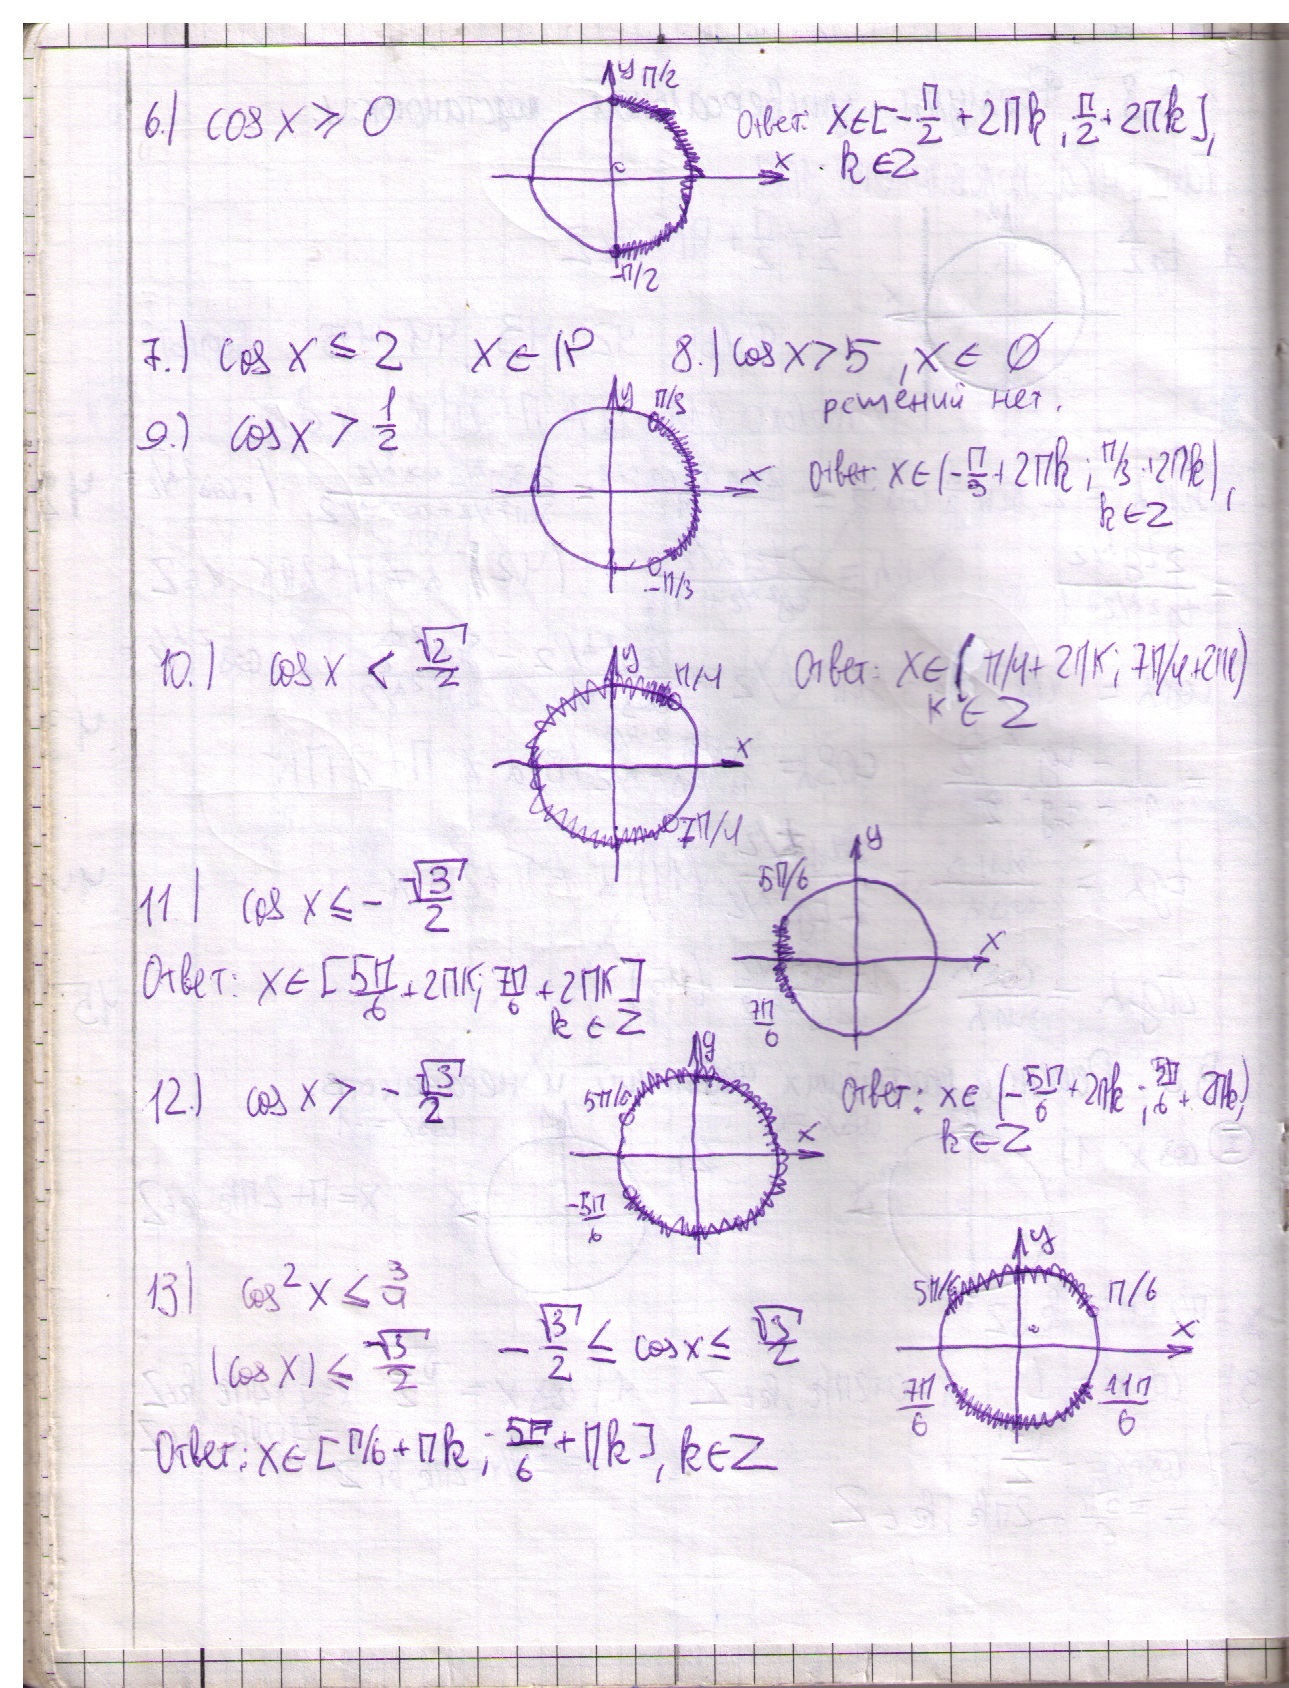 6.) cos x ≥ 0
y π/2
x
0
-π/2
Ответ: x∈[-π/2 + 2πk, π/2 + 2πk],
k ∈ Z
7.) cos x ≤ 2 x ∈ ℝ 8.) cos x > 5, x ∈ ∅
решений нет.
9.) cos x > 1/2
y π/3
x
-π/3
Ответ: x∈(-π/3 + 2πk; π/3 + 2πk),
k ∈ Z
10.) cos x < √2/2
y π/4
x
7π/4
Ответ: x∈(π/4 + 2πk; 7π/4 + 2πk)
k ∈ Z
11) cos x ≤ -√3/2
y
5π/6
x
7π/6
Ответ: x∈[5π/6 + 2πk; 7π/6 + 2πk]
k ∈ Z
12.) cos x > -√3/2
y
5π/6
x
-5π/6
Ответ: x∈(-5π/6 + 2πk; 5π/6 + 2πk)
k ∈ Z
13) cos² x ≤ 3/4
|cos x| ≤ √3/2 -√3/2 ≤ cos x ≤ √3/2
y
5π/6 π/6
x
7π/6 11π/6
Ответ: x∈[π/6 + πk; 5π/6 + πk], k∈Z